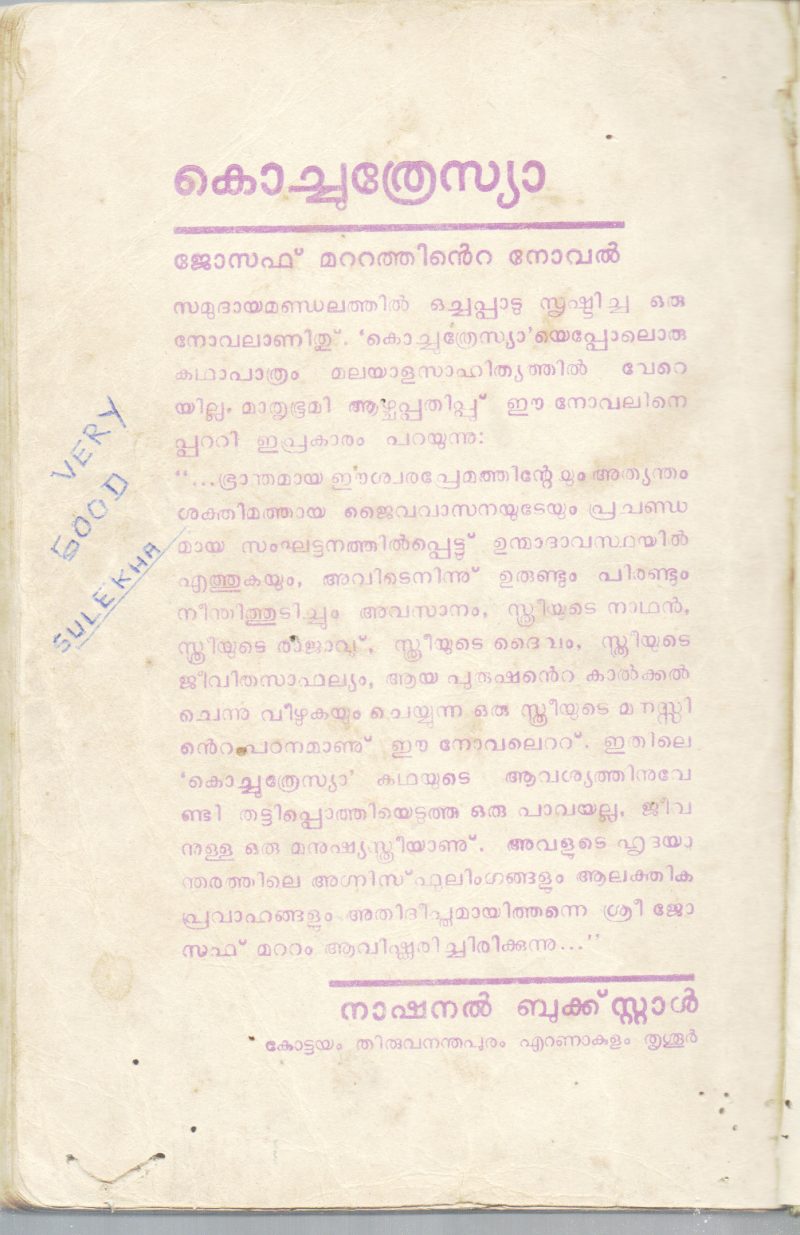 കൊച്ചുത്രേസ്യാ
ജോസഫ് മററത്തിൻെറ നോവൽ
സമുദായമണ്ഡലത്തിൽ ഒച്ചപ്പാടു സൃഷ്ടിച്ച ഒരു
നോവലാണിതു്. ‘കൊച്ചുത്രേസ്യാ’യെപ്പോലൊരു
കഥാപാത്രം മലയാളസാഹിത്യത്തിൽ വേറെ
യില്ല. മാതൃഭൂമി ആഴ്ചപ്പതിപ്പു് ഈ നോവലിനെ
പ്പററി ഇപ്രകാരം പറയുന്നു:
“...ഭ്രാന്തമായ ഈശ്വരപ്രേമത്തിന്റേയും അത്യന്തം
ശക്തിമത്തായ ജൈവവാസനയുടേയും പ്രചണ്ഡ
മായ സംഘട്ടനത്തിൽപ്പെട്ടു് ഉന്മാദാവസ്ഥയിൽ
എത്തുകയും, അവിടെനിന്നു് ഉരുണ്ടും പിരണ്ടും
നീന്തിത്തുടിച്ചും അവസാനം, സ്ത്രീയുടെ നാഥൻ,
സ്ത്രീയുടെ രാജാവു്, സ്ത്രീയുടെ ദൈവം, സ്ത്രീയുടെ
ജീവിതസാഫല്യം, ആയ പുരുഷൻെറ കാൽക്കൽ
ചെന്നു വീഴുകയും ചെയ്യുന്ന ഒരു സ്ത്രീയുടെ മനസ്സി
ൻെറ പഠനമാണു് ഈ നോവലെററ്. ഇതിലെ
‘കൊച്ചുത്രേസ്യാ’ കഥയുടെ ആവശ്യത്തിനുവേ
ണ്ടി തട്ടിപ്പൊത്തിയെടുത്ത ഒരു പാവയല്ല, ജീവ
നുള്ള ഒരു മനുഷ്യസ്ത്രീയാണു്. അവളുടെ ഹൃദയാ
ന്തരത്തിലെ അഗ്നിസ്ഫുലിംഗങ്ങളും ആലക്തിക
പ്രവാഹങ്ങളും അതിദീപ്തമായിത്തന്നെ ശ്രീ ജോ
സഫ് മററം ആവിഷ്കരിച്ചിരിക്കുന്നു...”
നാഷനൽ ബുക്ക് സ്റ്റാൾ
കോട്ടയം തിരുവനന്തപുരം എറണാകുളം തൃശൂർ
VERY
GOOD
SULEKHA